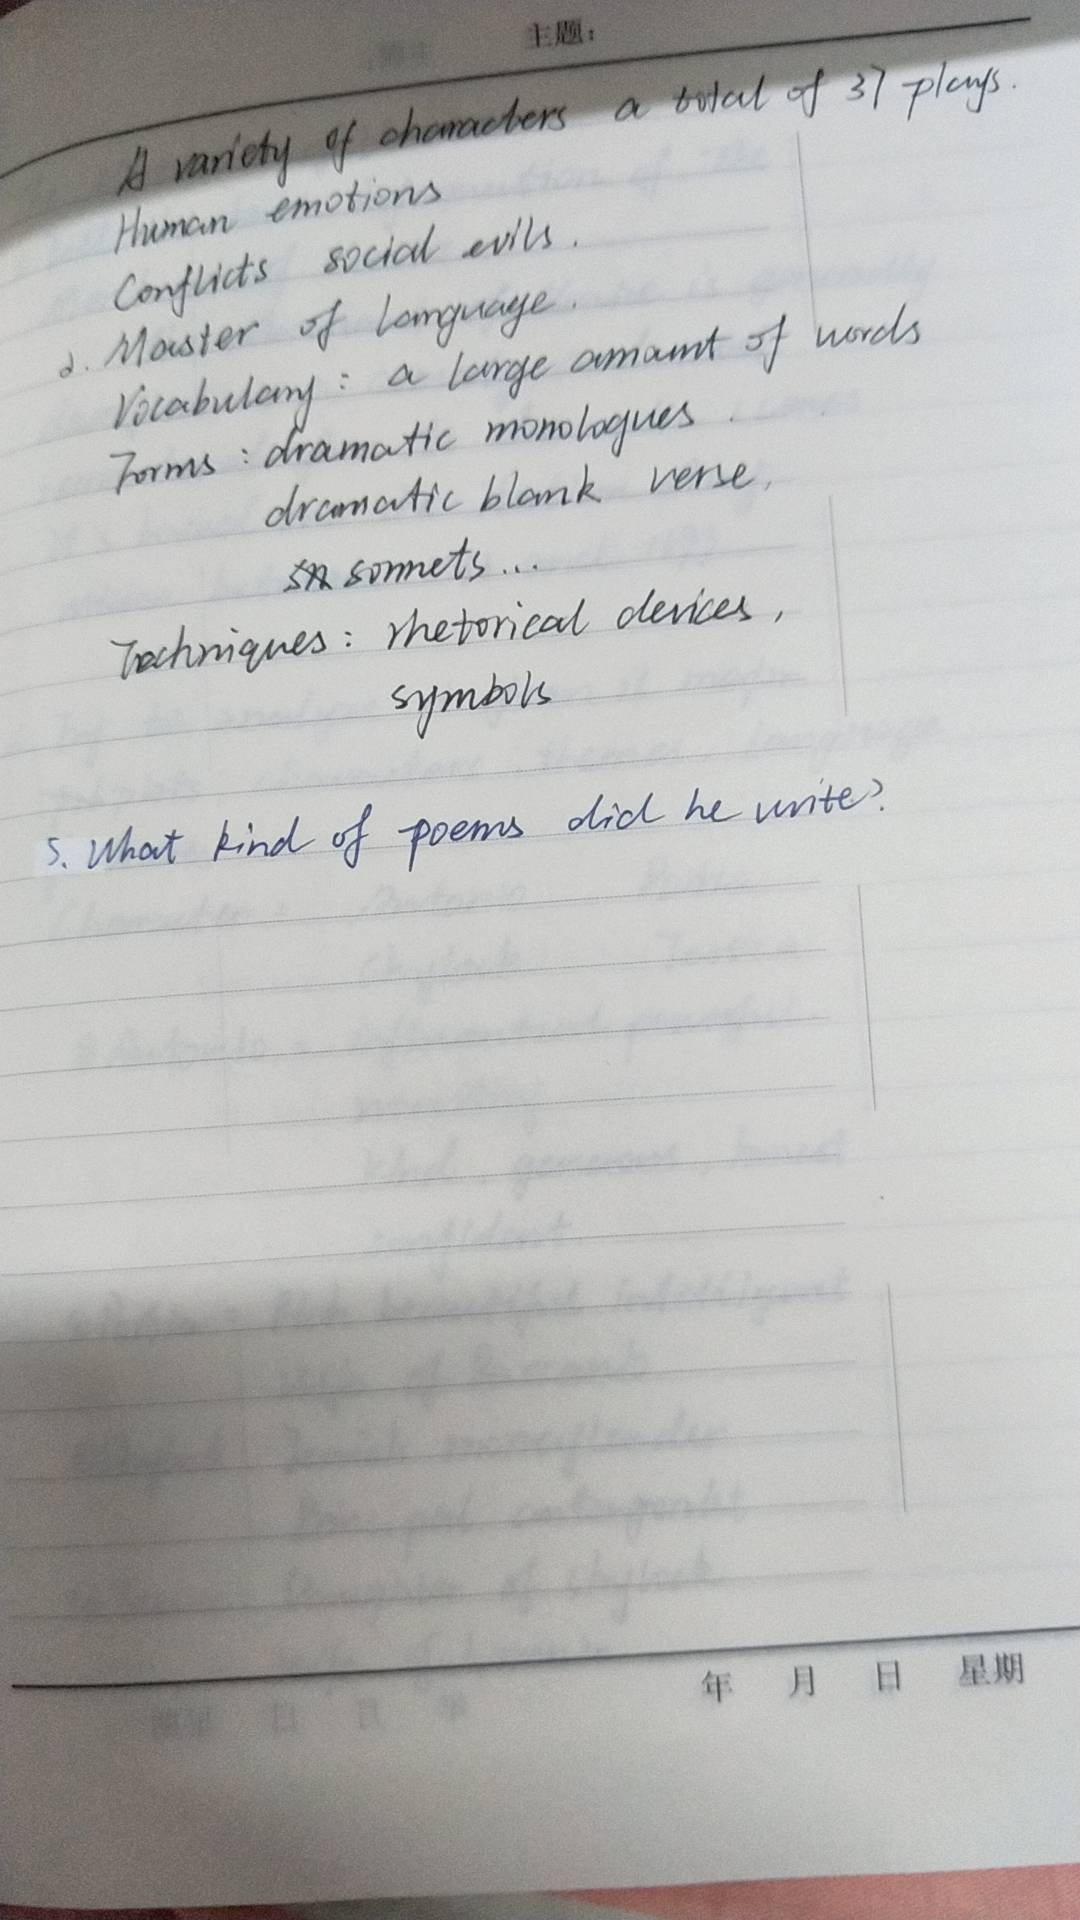 主题：
A variety of characters a total of 37 plays.
Human emotions
Conflicts social evils.
2. Master of language.
Vocabulary: a large amount of words
Forms: dramatic monologues.
dramatic blank verse,
sonnets...
Techniques: rhetorical devices,
symbols
5. What kind of poems did he write?
年 月 日 星期